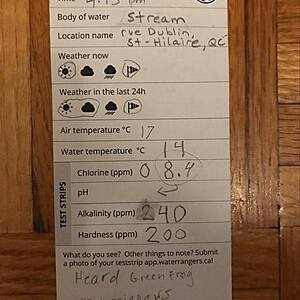 Time 4:15 pm
Body of water stream
Location name rue Dublin,
St-Hilaire, QC
Weather now
Weather in the last 24h
Air temperature °C 17
Water temperature °C 14
TEST STRIPS
Chlorine (ppm) 0 8.4
pH
Alkalinity (ppm) 240
Hardness (ppm) 200
What do you see? Other things to note? Submit
a photo of your teststrip app.waterrangers.ca!
Heard Green frog